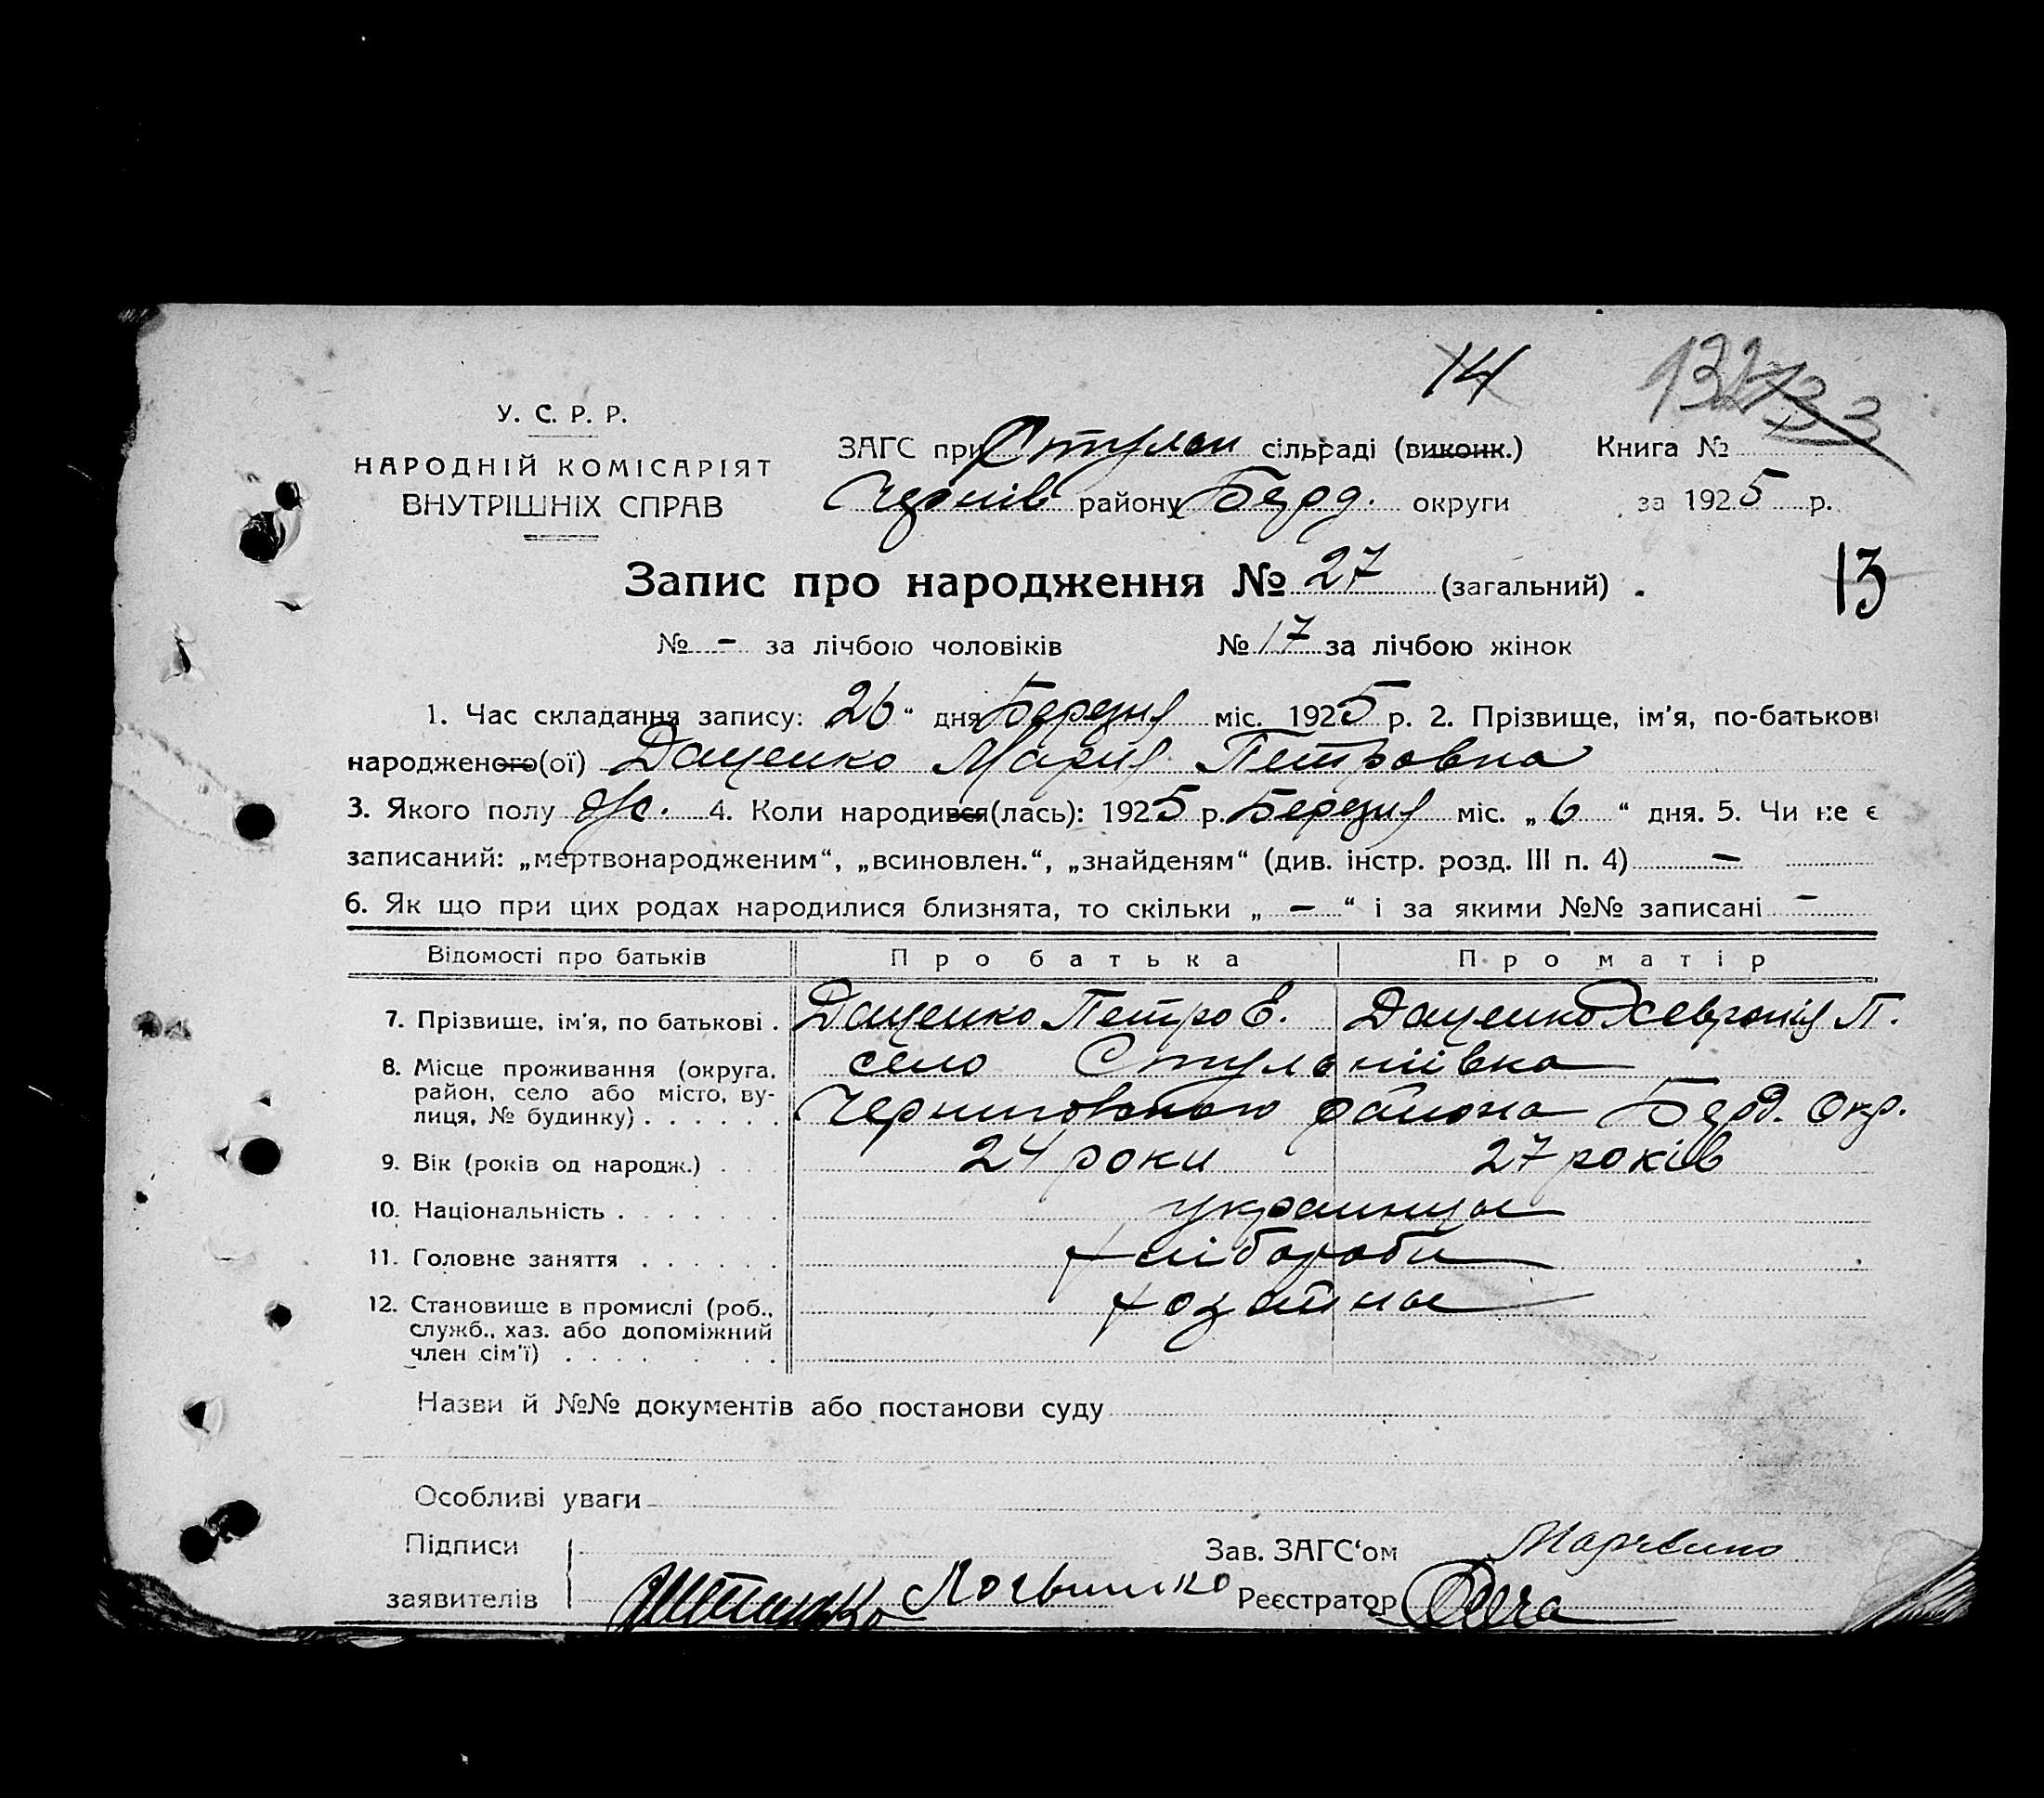 14
132 133
У. С. Р. Р.
НАРОДНІЙ КОМІСАРІЯТ
ВНУТРІШНІХ СПРАВ
ЗАГС при Стулан сільраді (виконк.) Книга №
Чернів району Берд. округи за 1925 р.
Запис про народження № 27 (загальний)
13
№ - за лічбою чоловіків № 17 за лічбою жінок
1. Час складання запису: 26 " дня Березня міс. 1925 р. 2. Прізвище, ім'я, по-батькові
народженого(ої) Даценко Мария Петровна
3. Якого полу ж. 4. Коли народився(лась): 1925 р. Березня міс. „ 6 “ дня. 5. Чи не є
записаний: „мертвонародженим“, „всиновлен.“, „знайденям“ (див. інстр. розд. III п. 4) —
6. Як що при цих родах народилися близнята, то скільки „ — “ і за якими №№ записані —
Відомості про батьків Про батька Про матір
7. Прізвище, ім'я, по батькові . Даценко Петро Е. Даценко Хевронія П.
8. Місце проживання (округа, село Стуланиівка
район, село або місто, ву- Черниговского района Берд. окр.
лиця, № будинку) . . . . . .
9. Вік (років од народж.) . . 24 роки 27 років
10. Національність . . . . . . . украинцы
11. Головне заняття . . . . . . хлібороби
12. Становище в промислі (роб., хозяины
служб., хаз. або допоміжний
член сім'ї) . . . . . . .
Назви й №№ документів або постанови суду
Особливі уваги
Підписи Зав. ЗАГС‘ом
заявителів Логвиненко Реєстратор